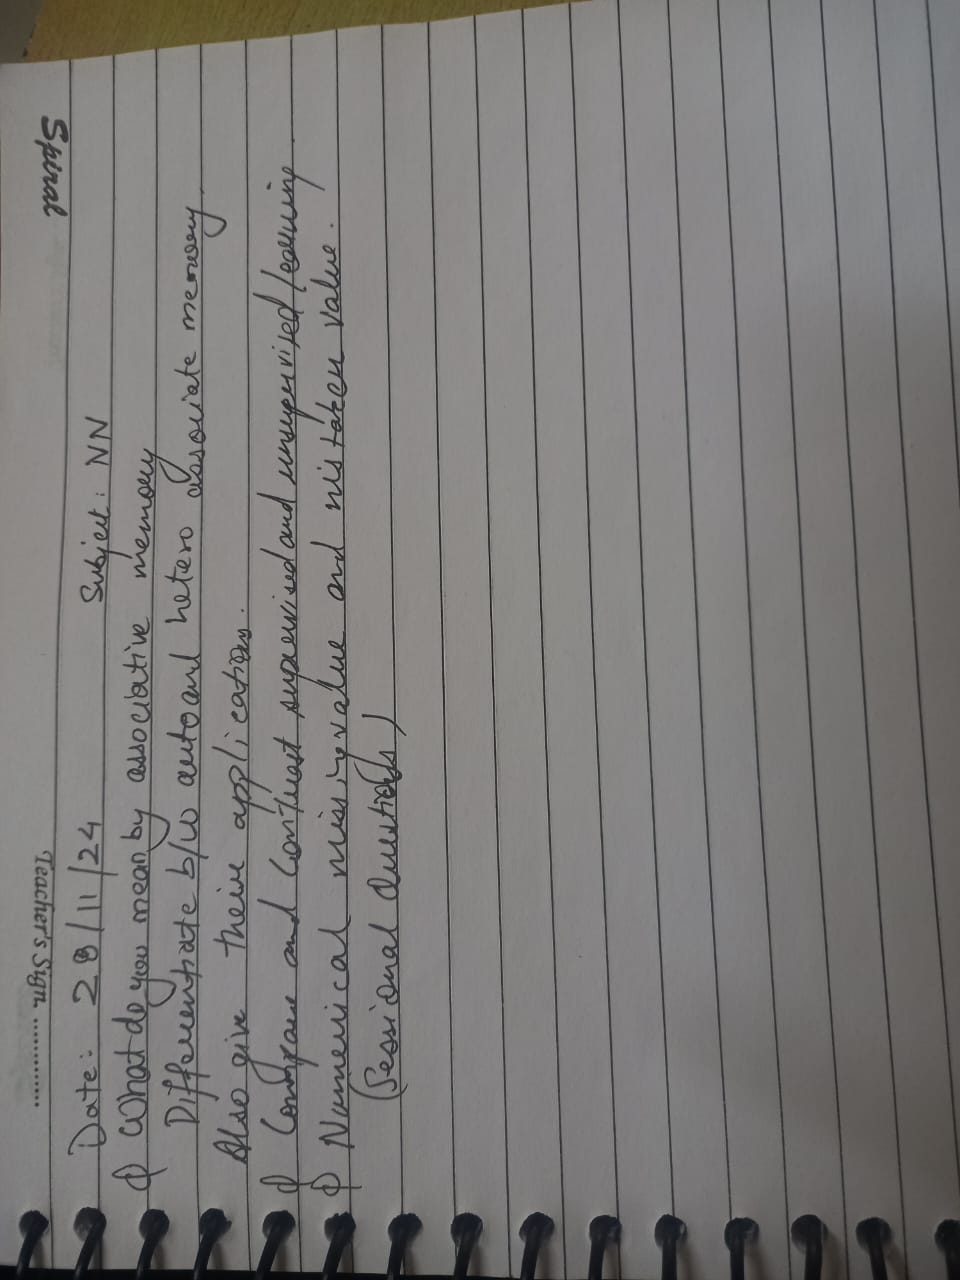 Teacher's Sign .............
Spiral
Date: 28/11/24 Subject: NN
Q What do you mean by associative memory
Differentiate b/w auto and hetero associate memory.
Also give their applications.
Q Compare and Contrast supervised and unsupervised learning.
Q Numerical missing value and mistaken value.
(Sessional Questions)